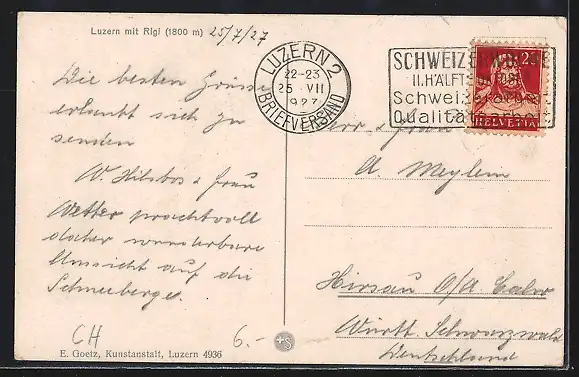 Luzern mit Rigi (1800 m) 25/7/27
Die besten Grüsse
erlaubt sich zu
senden
W. Hilsbos & Frau
Wetter prachtvoll
daher wunderbare
Aussicht auf die
Schneeberge.
CH
6.-
E. Goetz, Kunstanstalt, Luzern 4936
LUZERN 2
22-23
25 VII
1927
BRIEFVERSAND
SCHWEIZERWOCHE
II. HÄLFTE
Schweizer
Qualitätsarbeit
HELVETIA
Herr & Frau
A. Meylem
Hirsau O/A. Calw
Württ. Schwarzwald
Deutschland